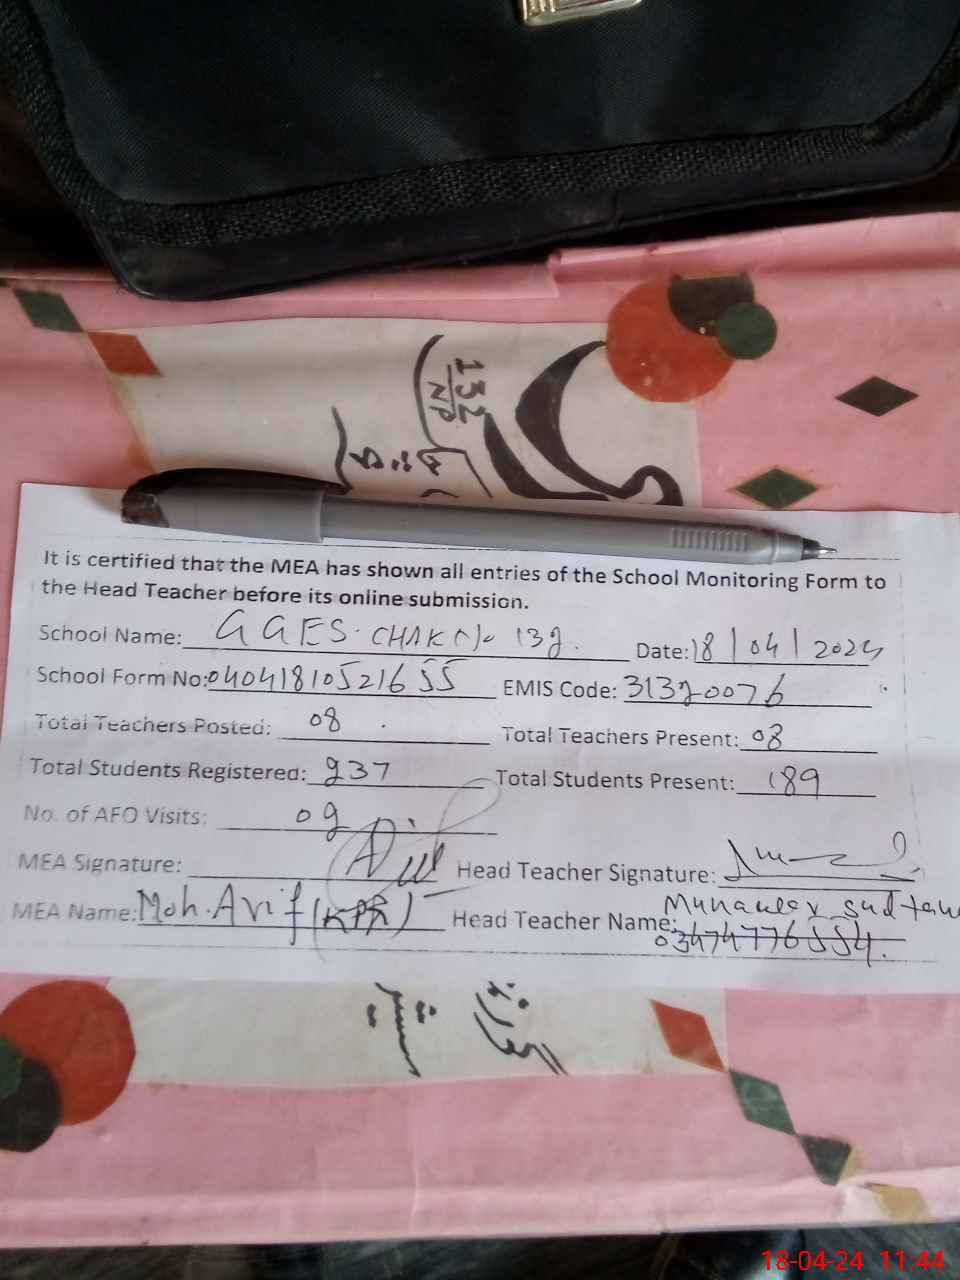 132
NP
It is certified that the MEA has shown all entries of the School Monitoring Form to
the Head Teacher before its online submission.
School Name: GGES. CHAK No 132. Date: 18/04/2024
School Form No: 04041810521655 EMIS Code: 31320076
Total Teachers Posted: 08 Total Teachers Present: 08
Total Students Registered: 237 Total Students Present: 189
No. of AFO Visits: 02
MEA Signature: Head Teacher Signature:
MEA Name: Moh. Arif (KPR) Head Teacher Name:
03474776554.
18-04-24 11:44